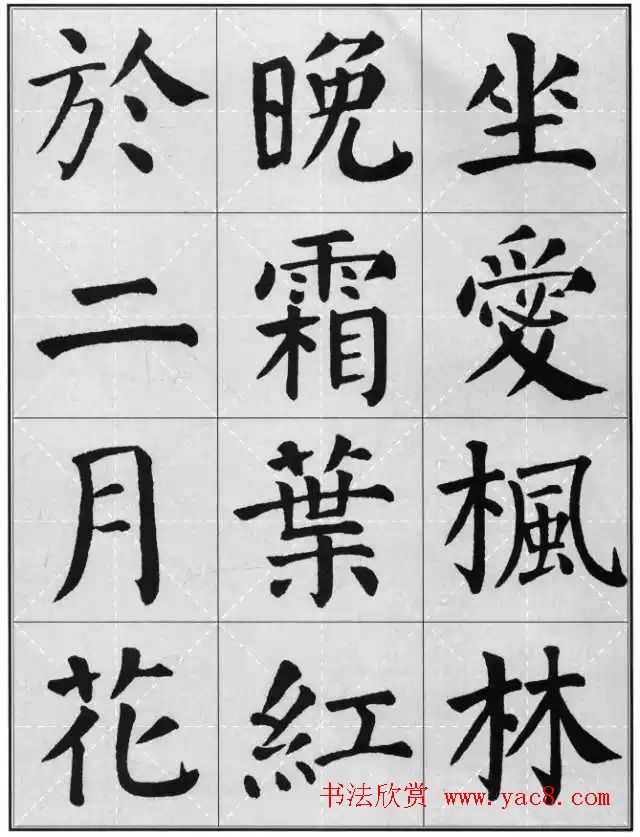 坐愛楓林
晚霜葉紅
於二月花
书法欣赏 www.yac8.com